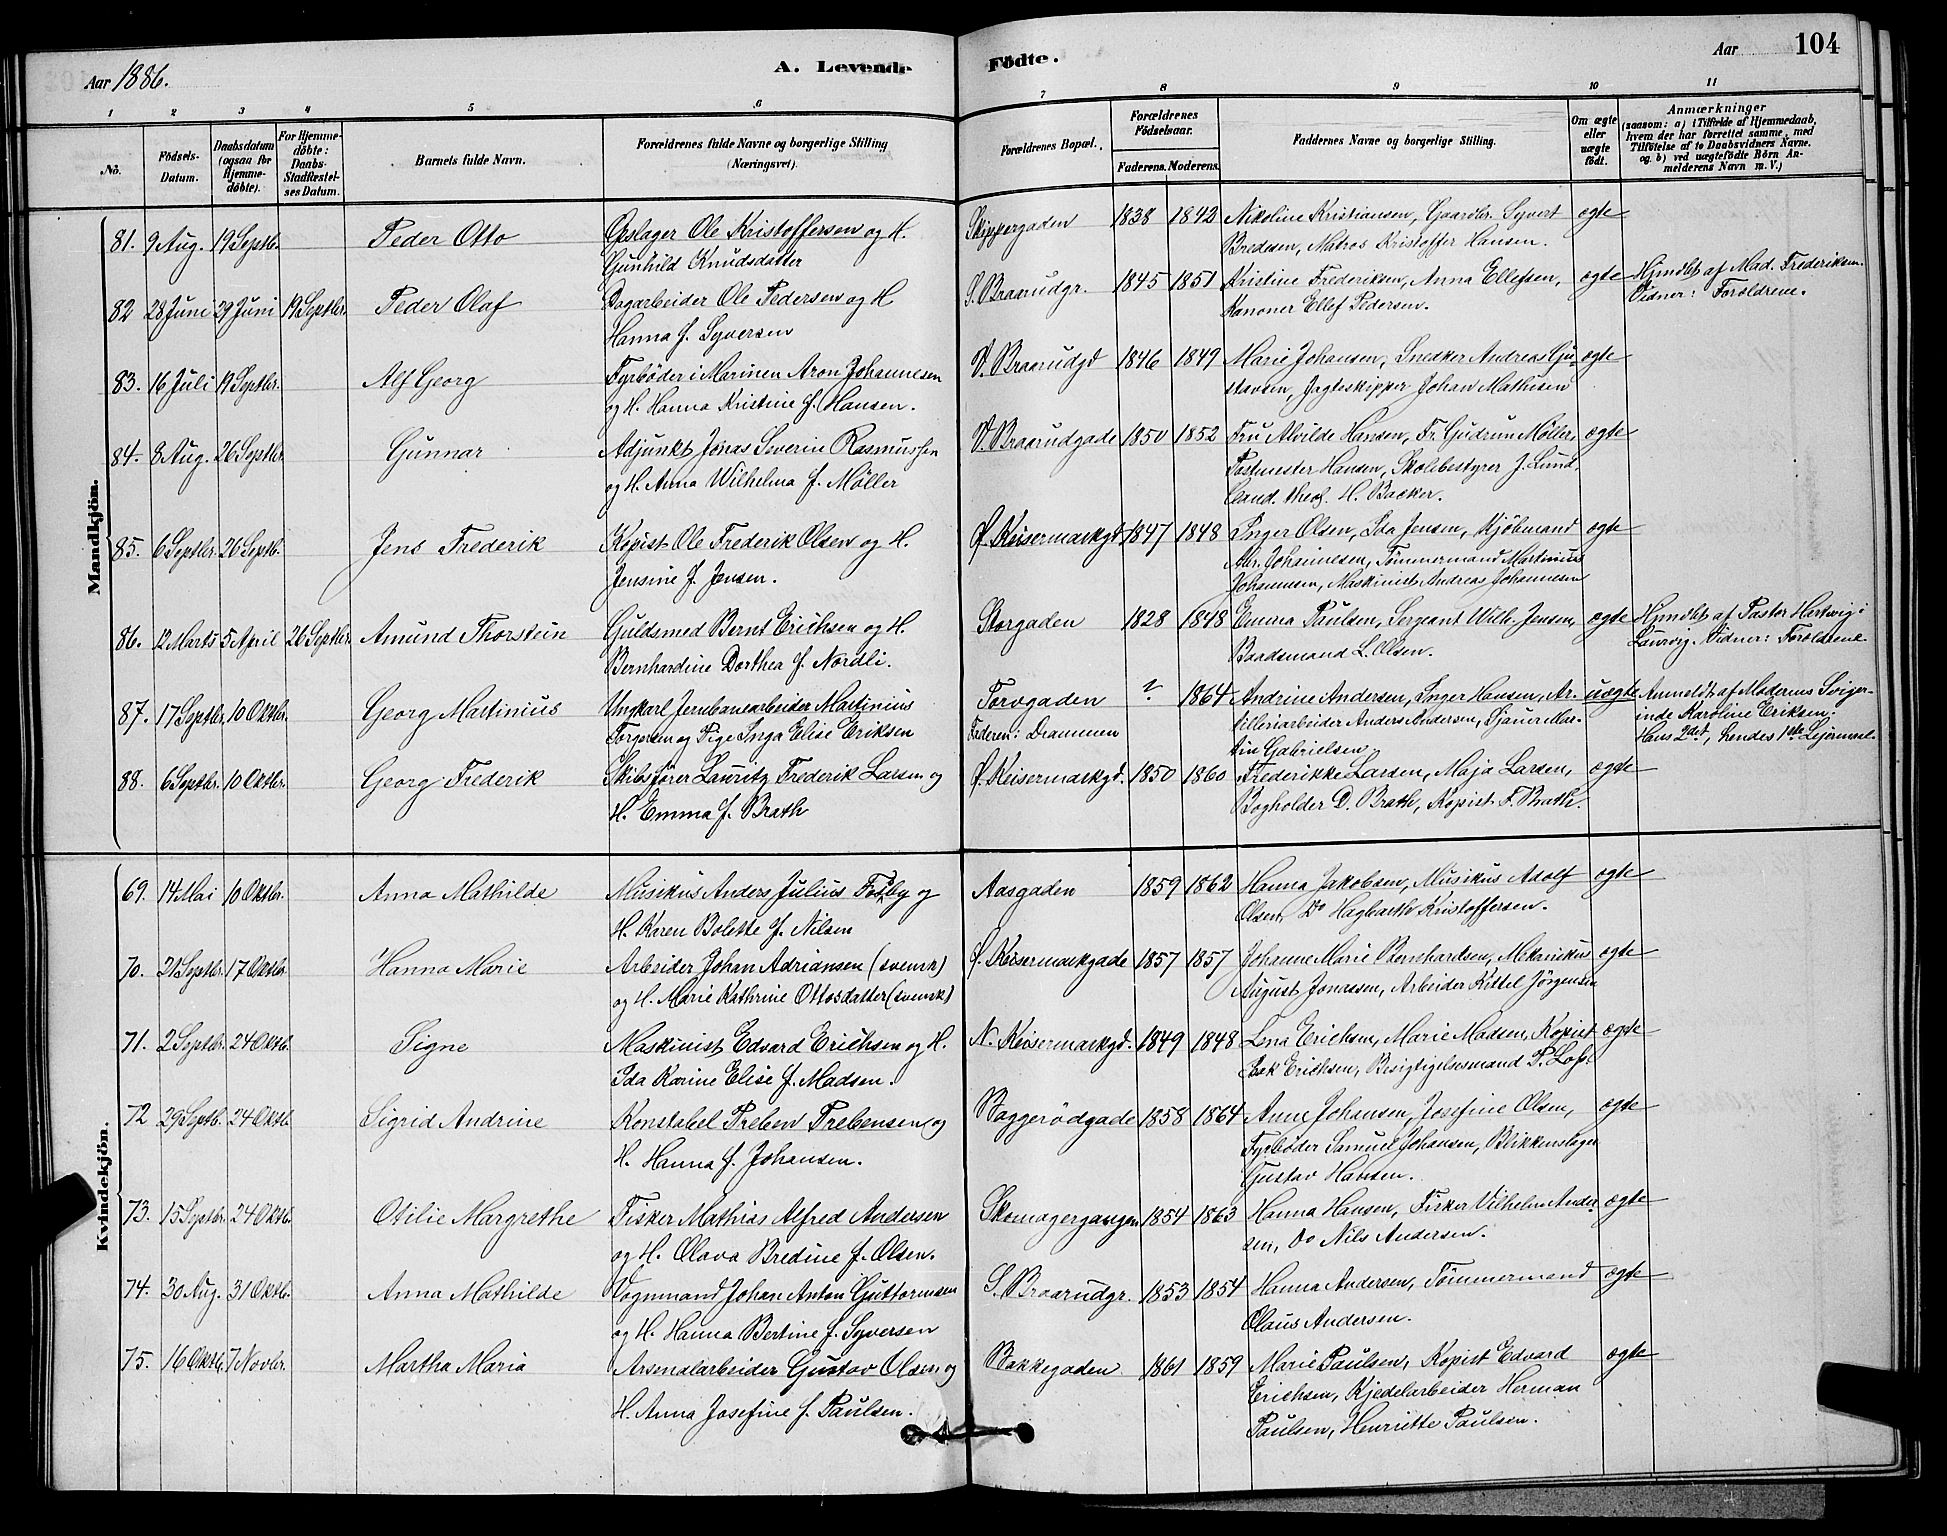 Aar 1886.
A. Levende Födte.
Aar 104
1 2 3 4 5 6 7 8 9 10 11
No.
Födsels-Datum.
Daabsdatum (ogsaa for Hjemme-döbte).
For Hjemme-döbte: Daabs-Stadfæstel-ses Datum.
Barnets fulde Navn.
Forældrenes fulde Navne og borgerlige Stilling (Næringsvei).
Forældrenes Bopæl.
Forældrenes Födselsaar.
Faderens. Moderens.
Faddernes Navne og borgerlige Stilling.
Om ægte eller uægte födt.
Anmærkninger
(saasom: a) i Tilfælde af Hjemmedaab,
hvem der har forrettet samme, med
Tilföielse af to Daabsvidners Navne.
og b) ved uægtefödte Börn An-
melderens Navn m. V.)
Mandkjön.
81. 9 Aug. 19 Septb. Peder Otto Opslager Ole Kristoffersen og H. Skippergaden 1838 1842 Nikoline Kristiansen, Gaardbr. Syvert ægte
Gunhild Knudsdatter Bredesen, Matros Kristoffer Hansen.
82 28 Juni 29 Juni 19 Septbr. Peder Olaf Dagarbeider Ole Pedersen og H S. Braarudgr. 1845 1851 Kristine Frederiksen, Anna Ellefsen, ægte Hjmdbt af Mad. Frederiksen.
Hanna f. Syversen Kanoner Ellef Pedersen. Vidner: Forældrene.
83. 16 Juli 19 Septbr. Alf Georg Fyrbøder i Marinen Aron Johannesen V. Braarudgd 1846 1849 Marie Johansen, Snedker Andreas Gu- ægte
og H. Hanna Kristine f. Hansen. stavsen, Jagteskipper Johan Mathisen
84. 8 Aug. 26 Septbr. Gunnar Adjunkt Jonas Severin Rasmussen V. Braarudgade 1850 1852 Fru Alvilde Hansen, Fr. Gudrun Møller, ægte
og H. Anna Wilhelma f. Møller Postmester Hansen, Skolebestyrer J. Lund.
Cand. theol. H. Backer.
85. 6 Septbr. 26 Septb. Jens Frederik Kopist Ole Frederik Olsen og H. Ø. Keisermarkgd 1847 1848 Inger Olsen, Ida Jensen, Kjøbmand ægte
Jensine f. Jensen. Abr. Johannesen, Tømmermand Martinius
Johannesen, Maskinist Andreas Johannesen
86. 12 Marts 5 April 26 Septbr. Amund Thorstein Guldsmed Bernt Erichsen og H. Storgaden 1828 1848 Emma Paulsen, Sergeant Wilh. Jensen, ægte Hjmdbt af Pastor Hartwig i
Bernhardine Dorthea f. Nordli. Baadsmand L. Olsen. Laurvig. Vidner: Forældrene
87. 17 Septbr. 10 Oktbr. Georg Martinius Ungkarl Jernbanearbeider Martinius Torvgaden ? 1864 Andrine Andersen, Inger Hansen, Ar- uægte Anmeldt af Moderens Sviger-
Torgersen og Pige Inga Elise Eriksen Faderen: Drammen tilleriarbeider Anders Andersen, Sjauer Mar- inde Karoline Eriksen.
tin Gabrielsen Hans 2det, hendes 1ste Lejermaal
88. 6 Septbr. 10 Oktbr. Georg Frederik Skibsfører Lauritz Frederik Larsen og Ø. Keisermarkgd. 1850 1860 Frederikke Larsen, Maja Larsen, ægte
H. Emma f. Brath Bogholder D. Brath, Kopist F. Brath.
Kvindekjön.
69. 14 Mai 10 Oktbr. Anna Mathilde Musikus Anders Julius Foxby og Aasgaden 1859 1862 Hanna Jakobsen, Musikus Adolf ægte
H. Karen Bolette f. Nilsen Olsen, Do Hagbarth Kristoffersen.
70. 21 Septbr. 17 Oktbr. Hanna Marie Arbeider Johan Adriansen (svensk) Ø. Keisermarkgade 1857 1857 Johanne Marie Bernhardsen, Mekanikus ægte
og H. Marie Kathrine Ottosdatter (svensk) August Jonassen, Arbeider Kittel Jørgensen
71. 2 Septbr. 24 Oktb. Signe Maskinist Edvard Erichsen og H. N. Keisermarkgd. 1849 1848 Lena Erichsen, Marie Madsen, Kopist ægte
Ida Karine Elise f. Madsen. Erichsen, Besigtigelsesmand P.
72 29 Septb. 24 Oktb Sigrid Andrine Konstabel Preben Prebensen og Baggerødgade 1858 1864 Anne Johansen, Josefine Olsen, ægte
H. Hanna f. Johansen. Fyrbøder Samuel Johansen, Blikkenslager
Gustav Hansen.
73. 15 Septbr. 24 Oktb. Otilie Margrethe Fisker Mathias Alfred Andersen Skomagergangen 1854 1863 Hanna Hansen, Fisker Vilhelm Ander- ægte
og H. Olava Bredine f. Olsen. sen, Do Nils Andersen.
74. 30 Aug. 31 Oktb. Anna Mathilde Vognmand Johan Anton Guttormsen S. Braarudgr. 1853 1854 Hanna Andersen, Tømmermand ægte
og H. Hanna Bertine f. Syversen Olaus Andersen.
75. 16 Oktb. 7 Novbr. Martha Maria Arsenalarbeider Gustav Olsen og Bakkegaden 1861 1859 Marie Paulsen, Kopist Edvard ægte
H. Anna Josefine f. Paulsen. Erichsen, Kjedelarbeider Herman
Paulsen, Henriette Paulsen.